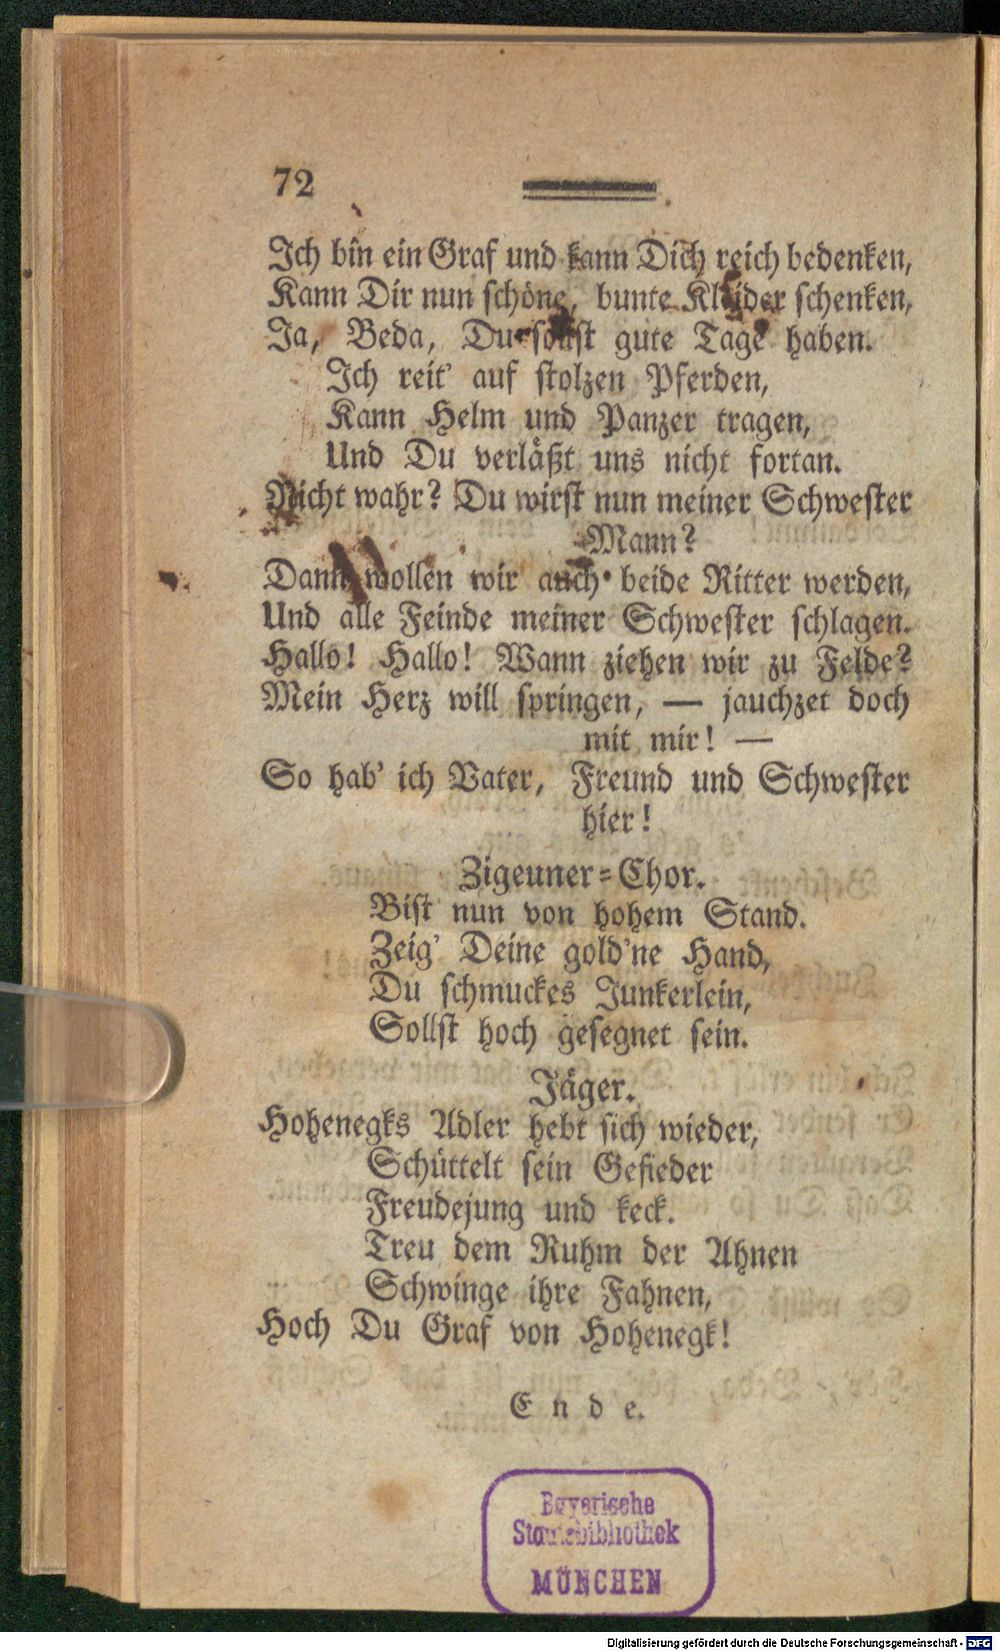 72
Ich bin ein Graf und kann Dich reich bedenken,
Kann Dir nun schöne, bunte Kleider schenken,
Ja, Beda, Du sollst gute Tage haben.
Ich reit' auf stolzen Pferden,
Kann Helm und Panzer tragen,
Und Du verläßt uns nicht fortan.
Nicht wahr? Du wirst nun meiner Schwester
Mann?
Dann wollen wir auch beide Ritter werden,
Und alle Feinde meiner Schwester schlagen.
Hallo! Hallo! Wann ziehen wir zu Felde?
Mein Herz will springen, — jauchzet doch
mit mir! —
So hab' ich Vater, Freund und Schwester
hier!
Zigeuner=Chor.
Bist nun von hohem Stand.
Zeig' Deine gold'ne Hand,
Du schmuckes Junkerlein,
Sollst hoch gesegnet sein.
Jäger.
Hohenegks Adler hebt sich wieder,
Schüttelt sein Gefieder
Freudejung und keck.
Treu dem Ruhm der Ahnen
Schwinge ihre Fahnen,
Hoch Du Graf von Hohenegk!
Ende.
Bayerische
Staatsbibliothek
MÜNCHEN
Digitalisierung gefördert durch die Deutsche Forschungsgemeinschaft - DFG